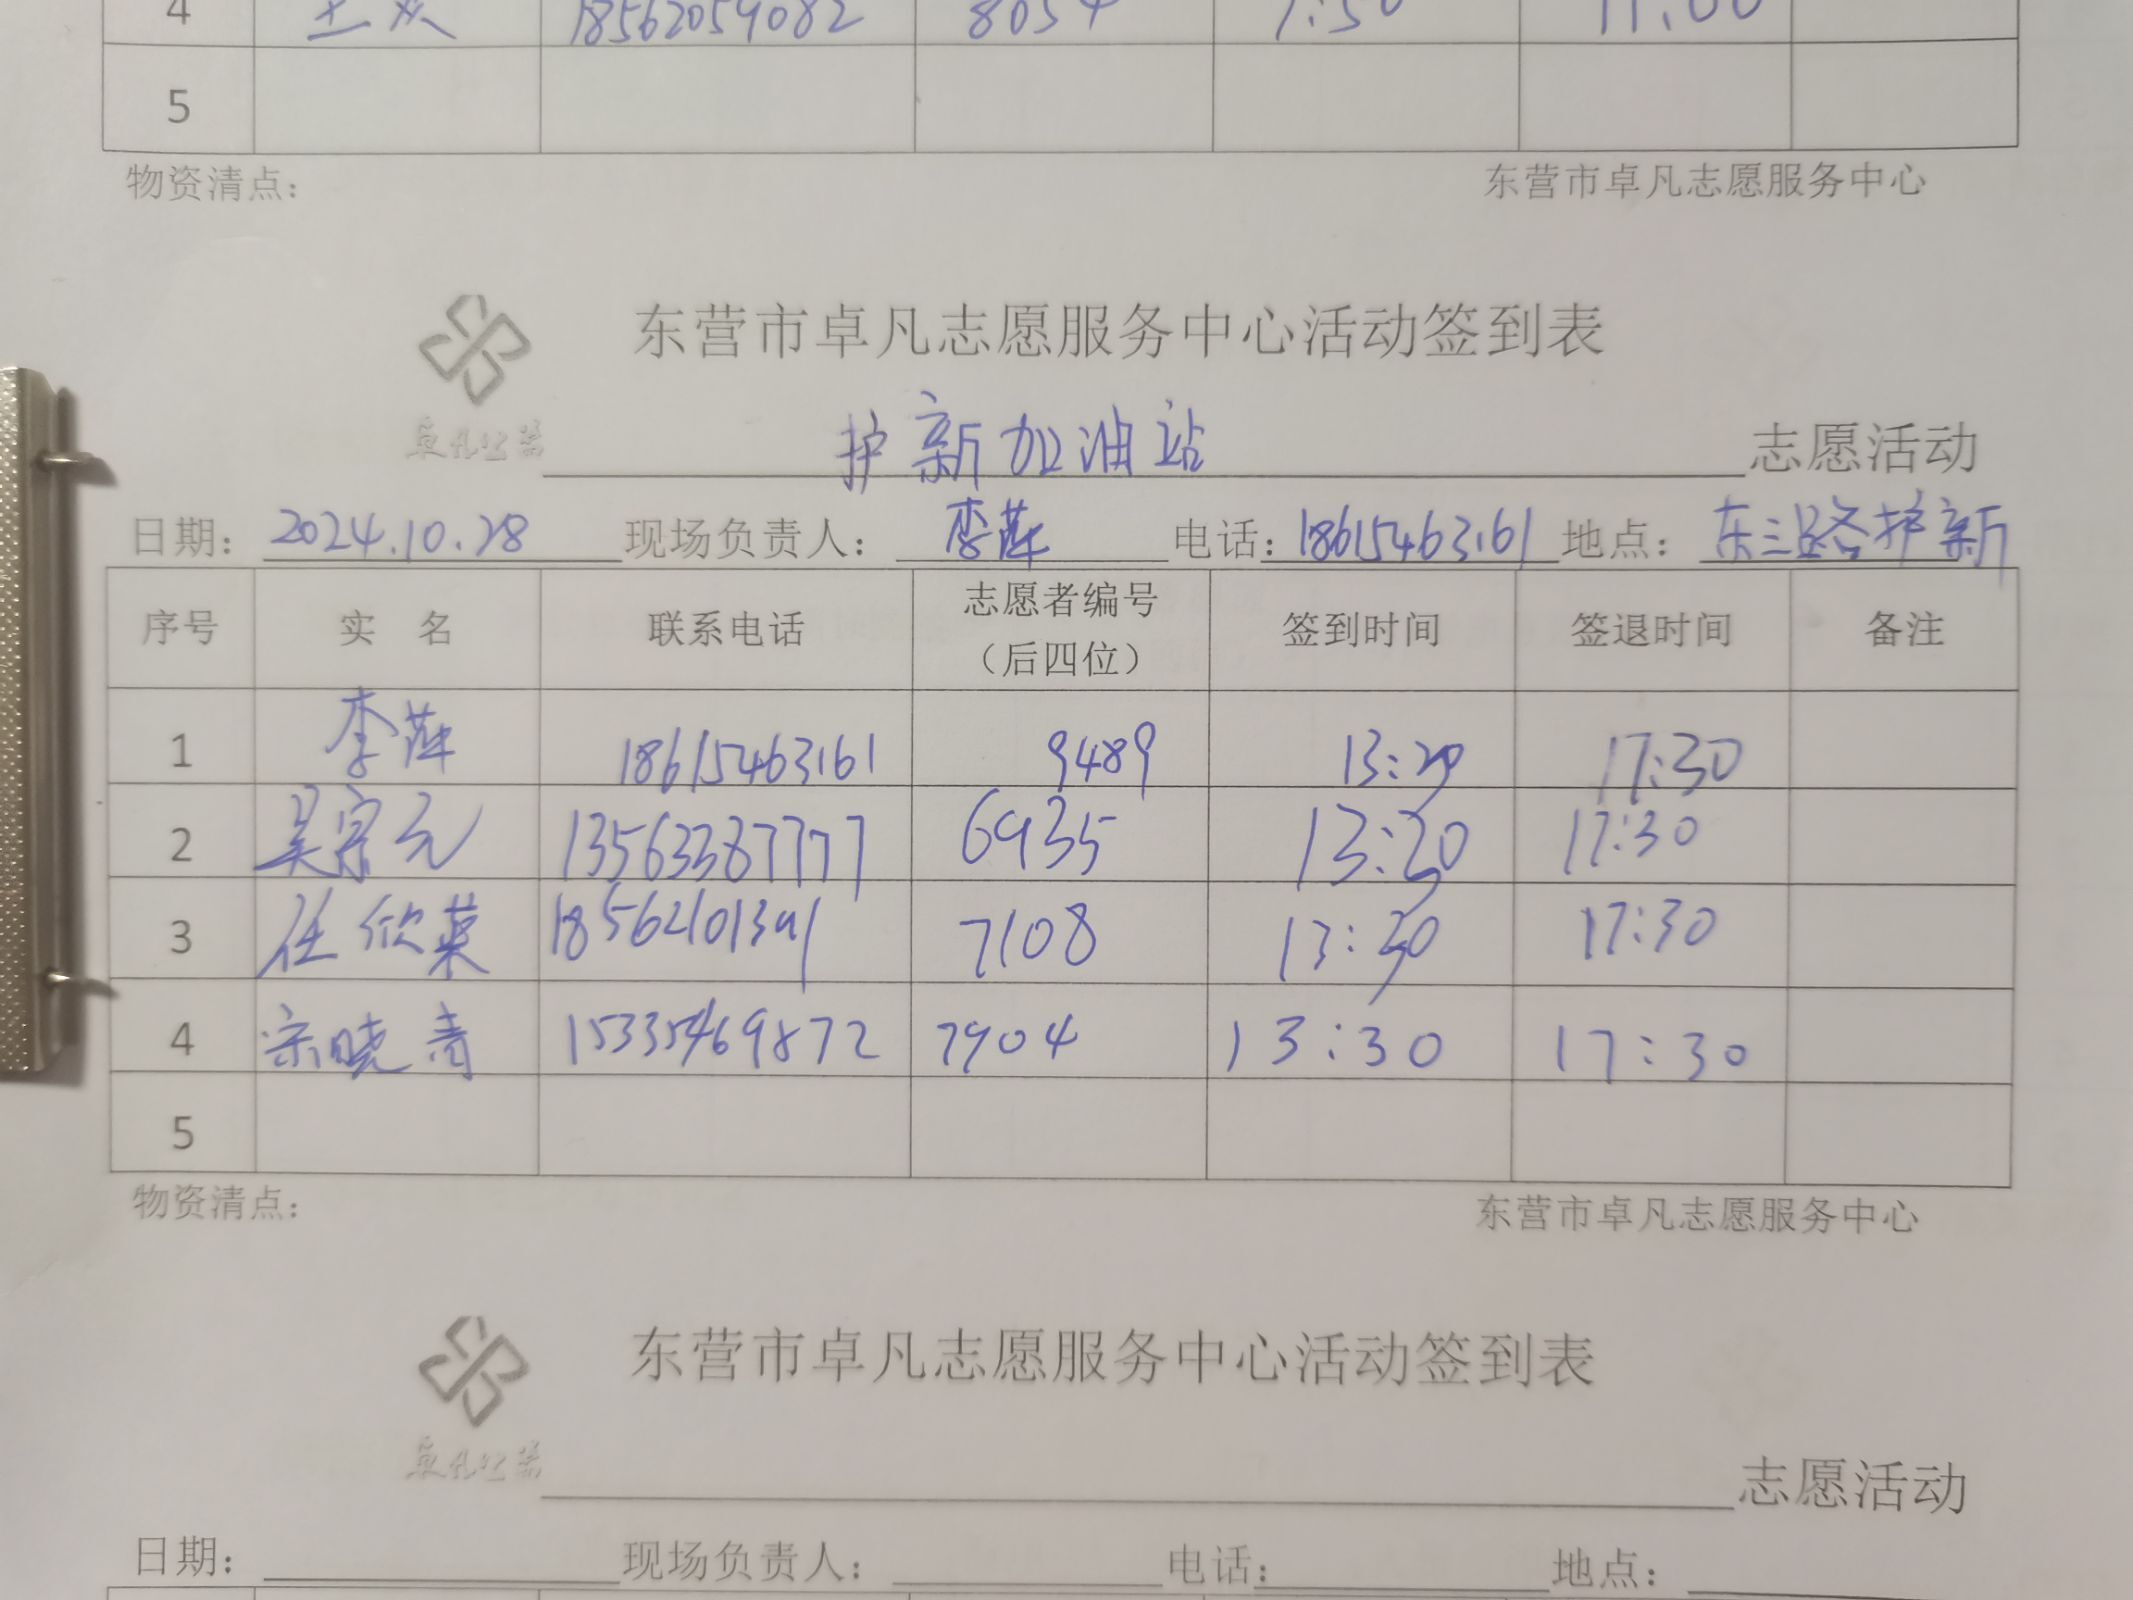 4 王双 18562059082 8054 7:50 11:00
5
物资清点： 东营市卓凡志愿服务中心
东营市卓凡志愿服务中心活动签到表
卓凡公益
护新加油站 志愿活动
日期：2024.10.28 现场负责人：李萍 电话：18615463161 地点：东三路护新
序号 实 名 联系电话 志愿者编号（后四位） 签到时间 签退时间 备注
1 李萍 18615463161 9489 13:20 17:30
2 吴宗元 13563387777 6935 13:20 17:30
3 任欣荣 18562101391 7108 13:30 17:30
4 宗晓青 15335469872 7904 13:30 17:30
5
物资清点： 东营市卓凡志愿服务中心
东营市卓凡志愿服务中心活动签到表
卓凡公益
志愿活动
日期： 现场负责人： 电话： 地点：